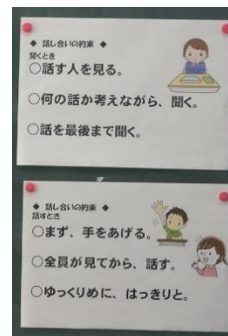 ◆ 話し合いの約束 ◆
聞くとき
○話す人を見る。
○何の話か考えながら、聞く。
○話を最後まで聞く。
◆ 話し合いの約束 ◆
話すとき
○まず、手をあげる。
○全員が見てから、話す。
○ゆっくりめに、はっきりと。